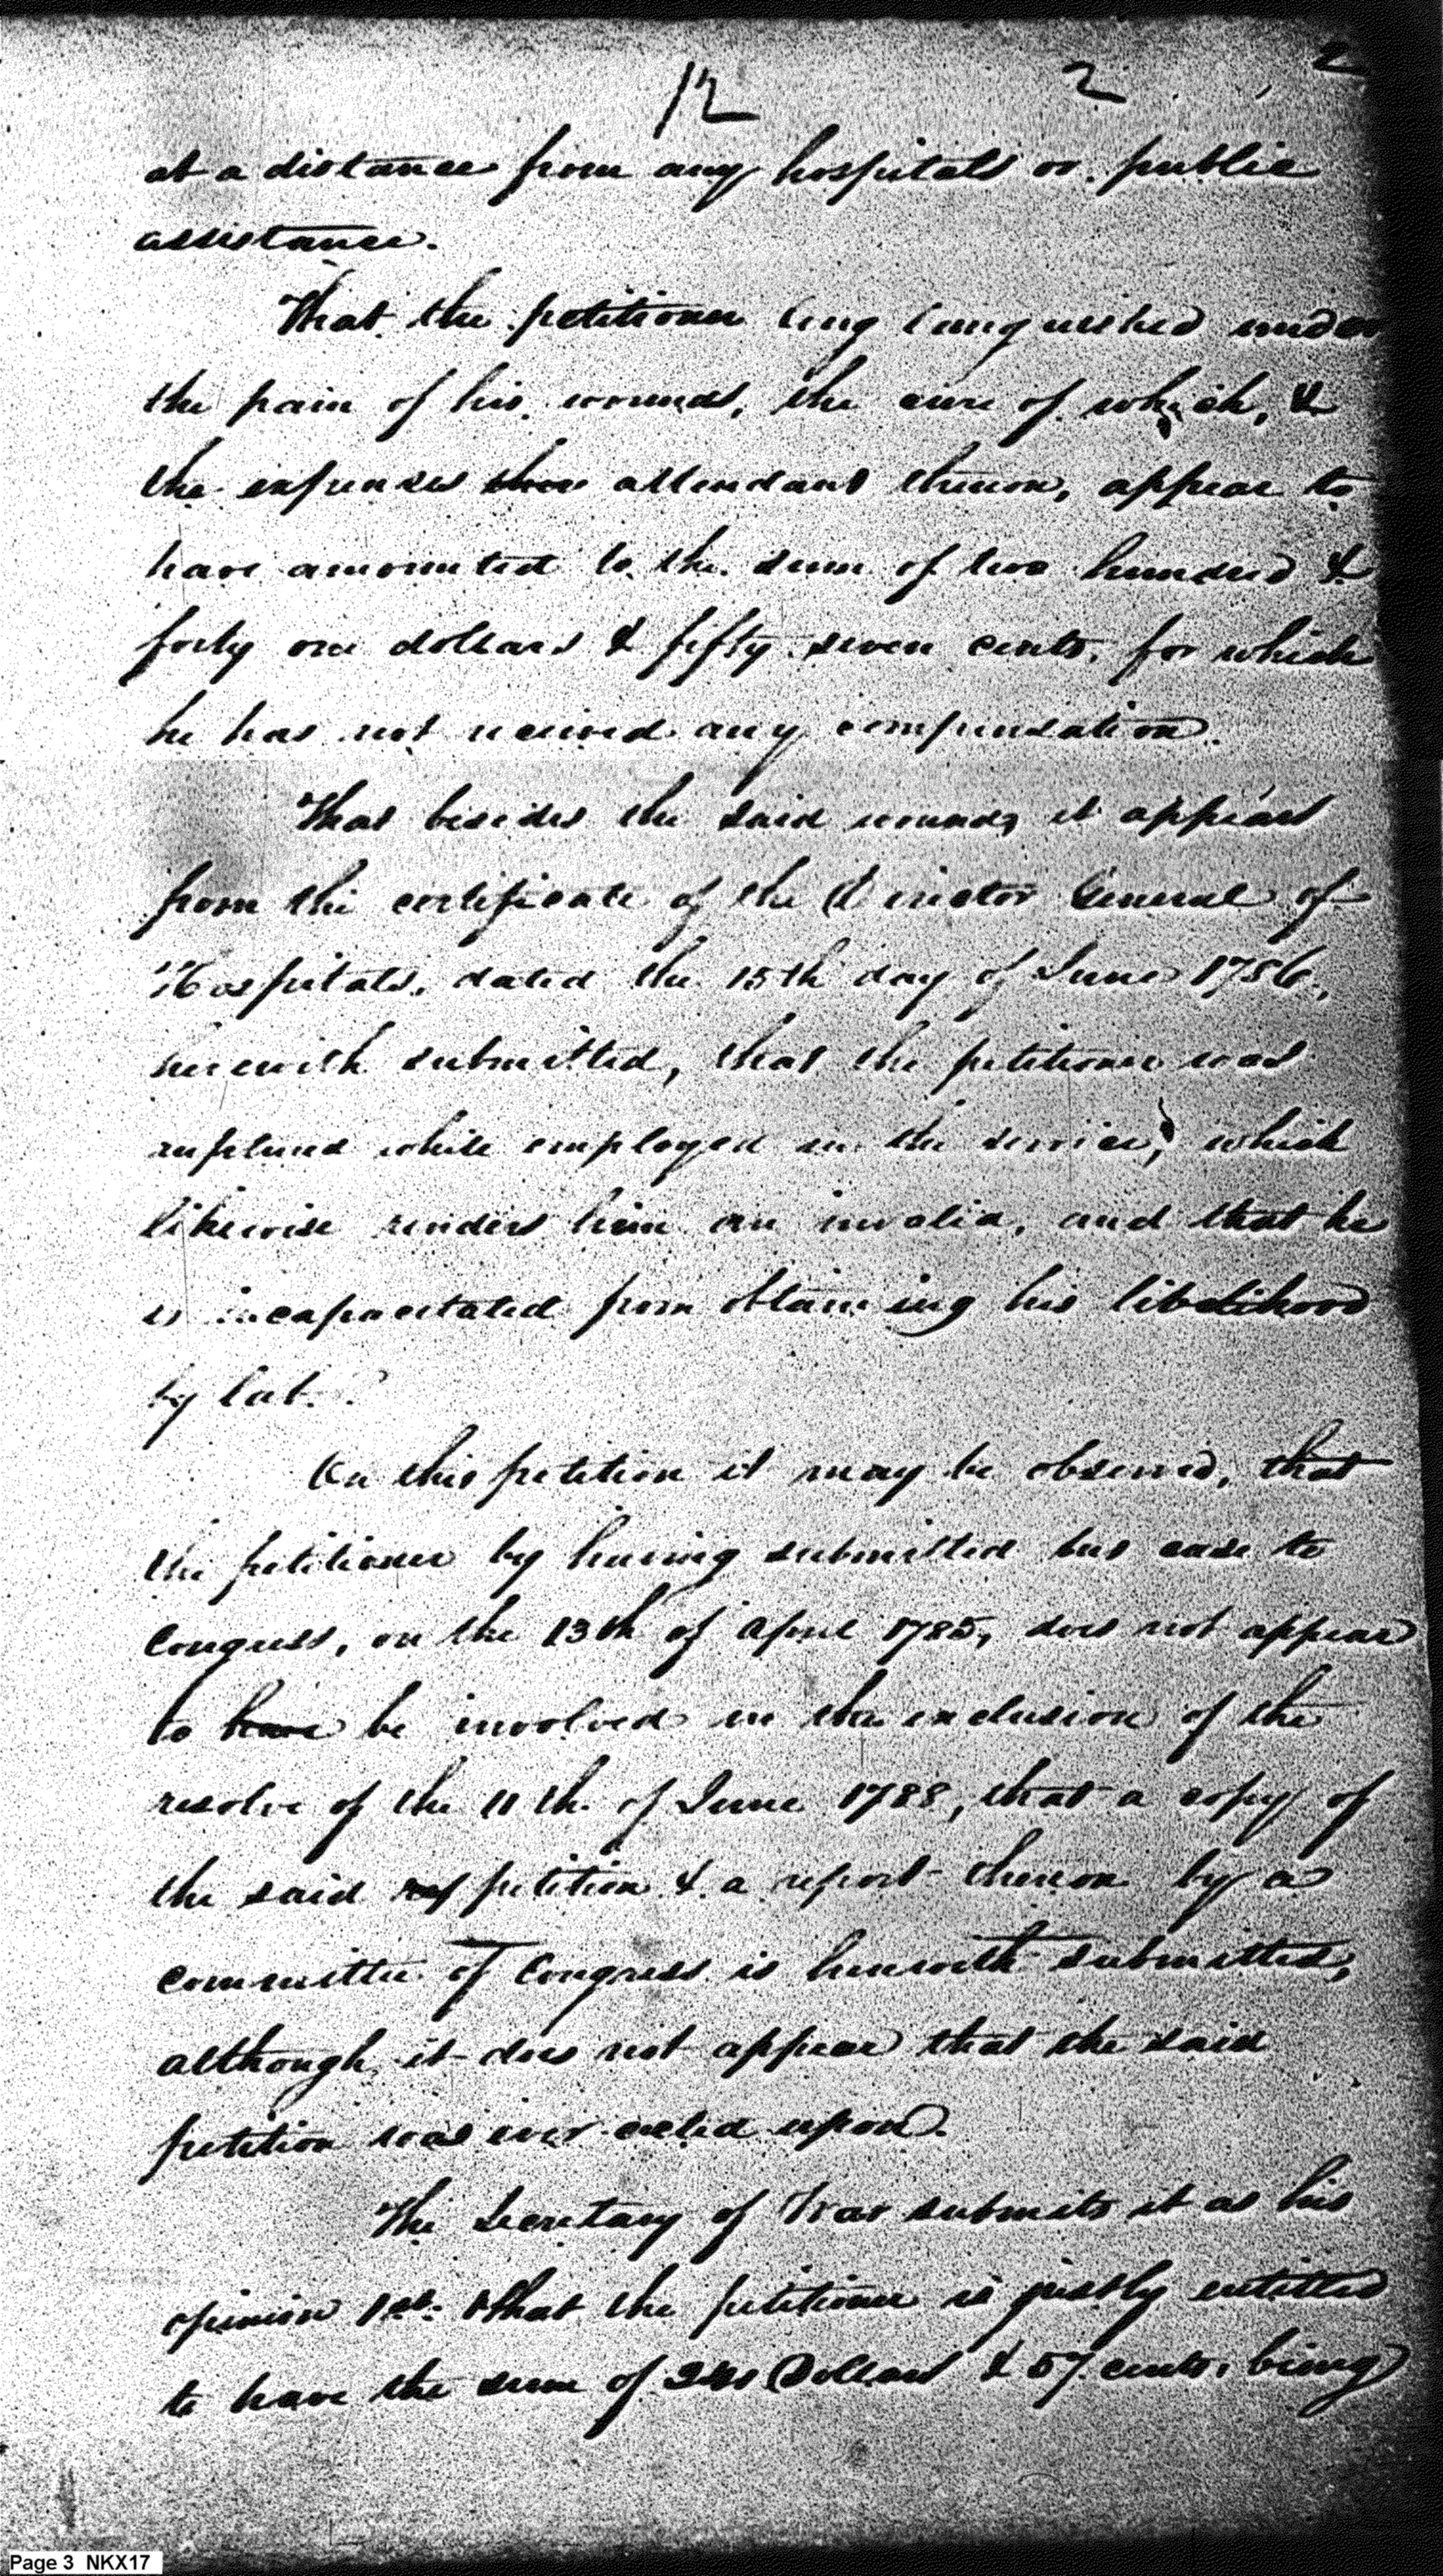 12 2 2
at a distance from any hospitals or public
assistance.
That the petitioner long languished under
the pain of his wounds, the cure of which, &
the expenses attendant thereon, appear to
have amounted to the sum of two hundred &
forty one dollars & fifty seven cents, for which
he has not received any compensation.
That besides the said wounds it appears
from the certificate of the Director General of
Hospitals, dated the 15th day of June 1786,
herewith submitted, that the petitioner was
ruptured while employed in the service, which
likewise renders him an invalid, and that he
is incapacitated from obtaining his libelihood
by lab
On this petition it may be observed, that
the petitioner by having submitted his case to
Congress, on the 13th of April 1785, does not appear
to have be involved in the exclusion of the
resolve of the 11th of June 1788, that a copy of
the said rep petition & a report thereon by a
committee of Congress is herewith submitted,
although it does not appear that the said
petition was ever acted upon.
The Secretary of War submits it as his
opinion 1st. that the petitioner is justly entitled
to have the sum of 241 Dollars & 57 cents, being
Page 3 NKX17